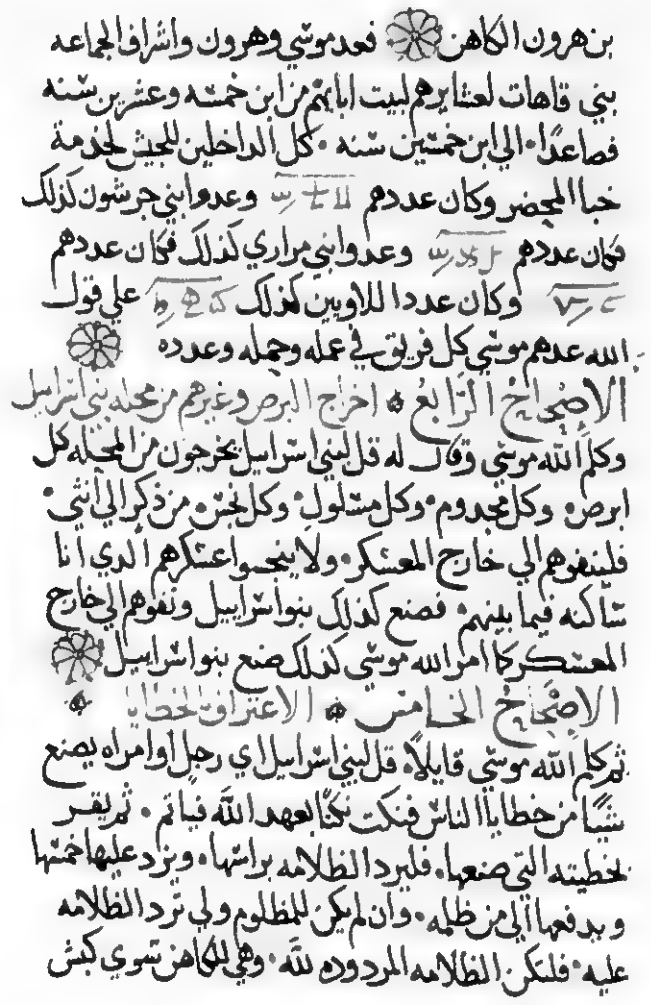 بن هرون الكاهن فعد موسي وهرون واشراف الجماعه
بني قاهات لعشايرهم لبيت ابايهم من ابن خمسه وعشرين سنه
فصاعدًا الي ابن خمسين سنه كل الداخلين للجيش لخدمة
خبا المحضر وكان عددهم وعدوا بني جرشون كذلك
فكان عددهم وعدوا بني مراري كذلك فكان عددهم
وكان عدد اللاويين كذلك علي قول
الله عدهم موسي كل فريق في عمله وحمله وعدده
الاصحاح الرابع اخراج البرص وغيرهم من محله بني اسراييل
وكلم الله موسي وقال له قل لبني اسراييل يخرجون من المحله كل
ابرص وكل مجدوم وكل مسلول وكل نجس من ذكر الي انثي
فلينفوهم الي خارج المعسكر ولا ينجسوا عسكرهم الدي انا
ساكنه فيما بينهم فصنع كذلك بنو اسراييل ونفوهم الي خارج
المعسكر كما امر الله موسي كذلك صنع بنو اسراييل
الاصحاح الخامس الاعتراف بالخطايا
ثم كلم الله موسي قايلاً قل لبني اسراييل اي رجل او امراه يصنع
شيًا من خطايا الناس فنكت نكتًا بعهد الله فياثم ثم يقر
بخطيته التي صنعها فليرد الظلامه براسها ويزد عليها خمسها
ويدفعها الي من ظلمه وان لم يكن للمظلوم ولي ترد الظلامه
عليه فلتكن الظلامه المردوده لله وهي للكاهن سوي كبش